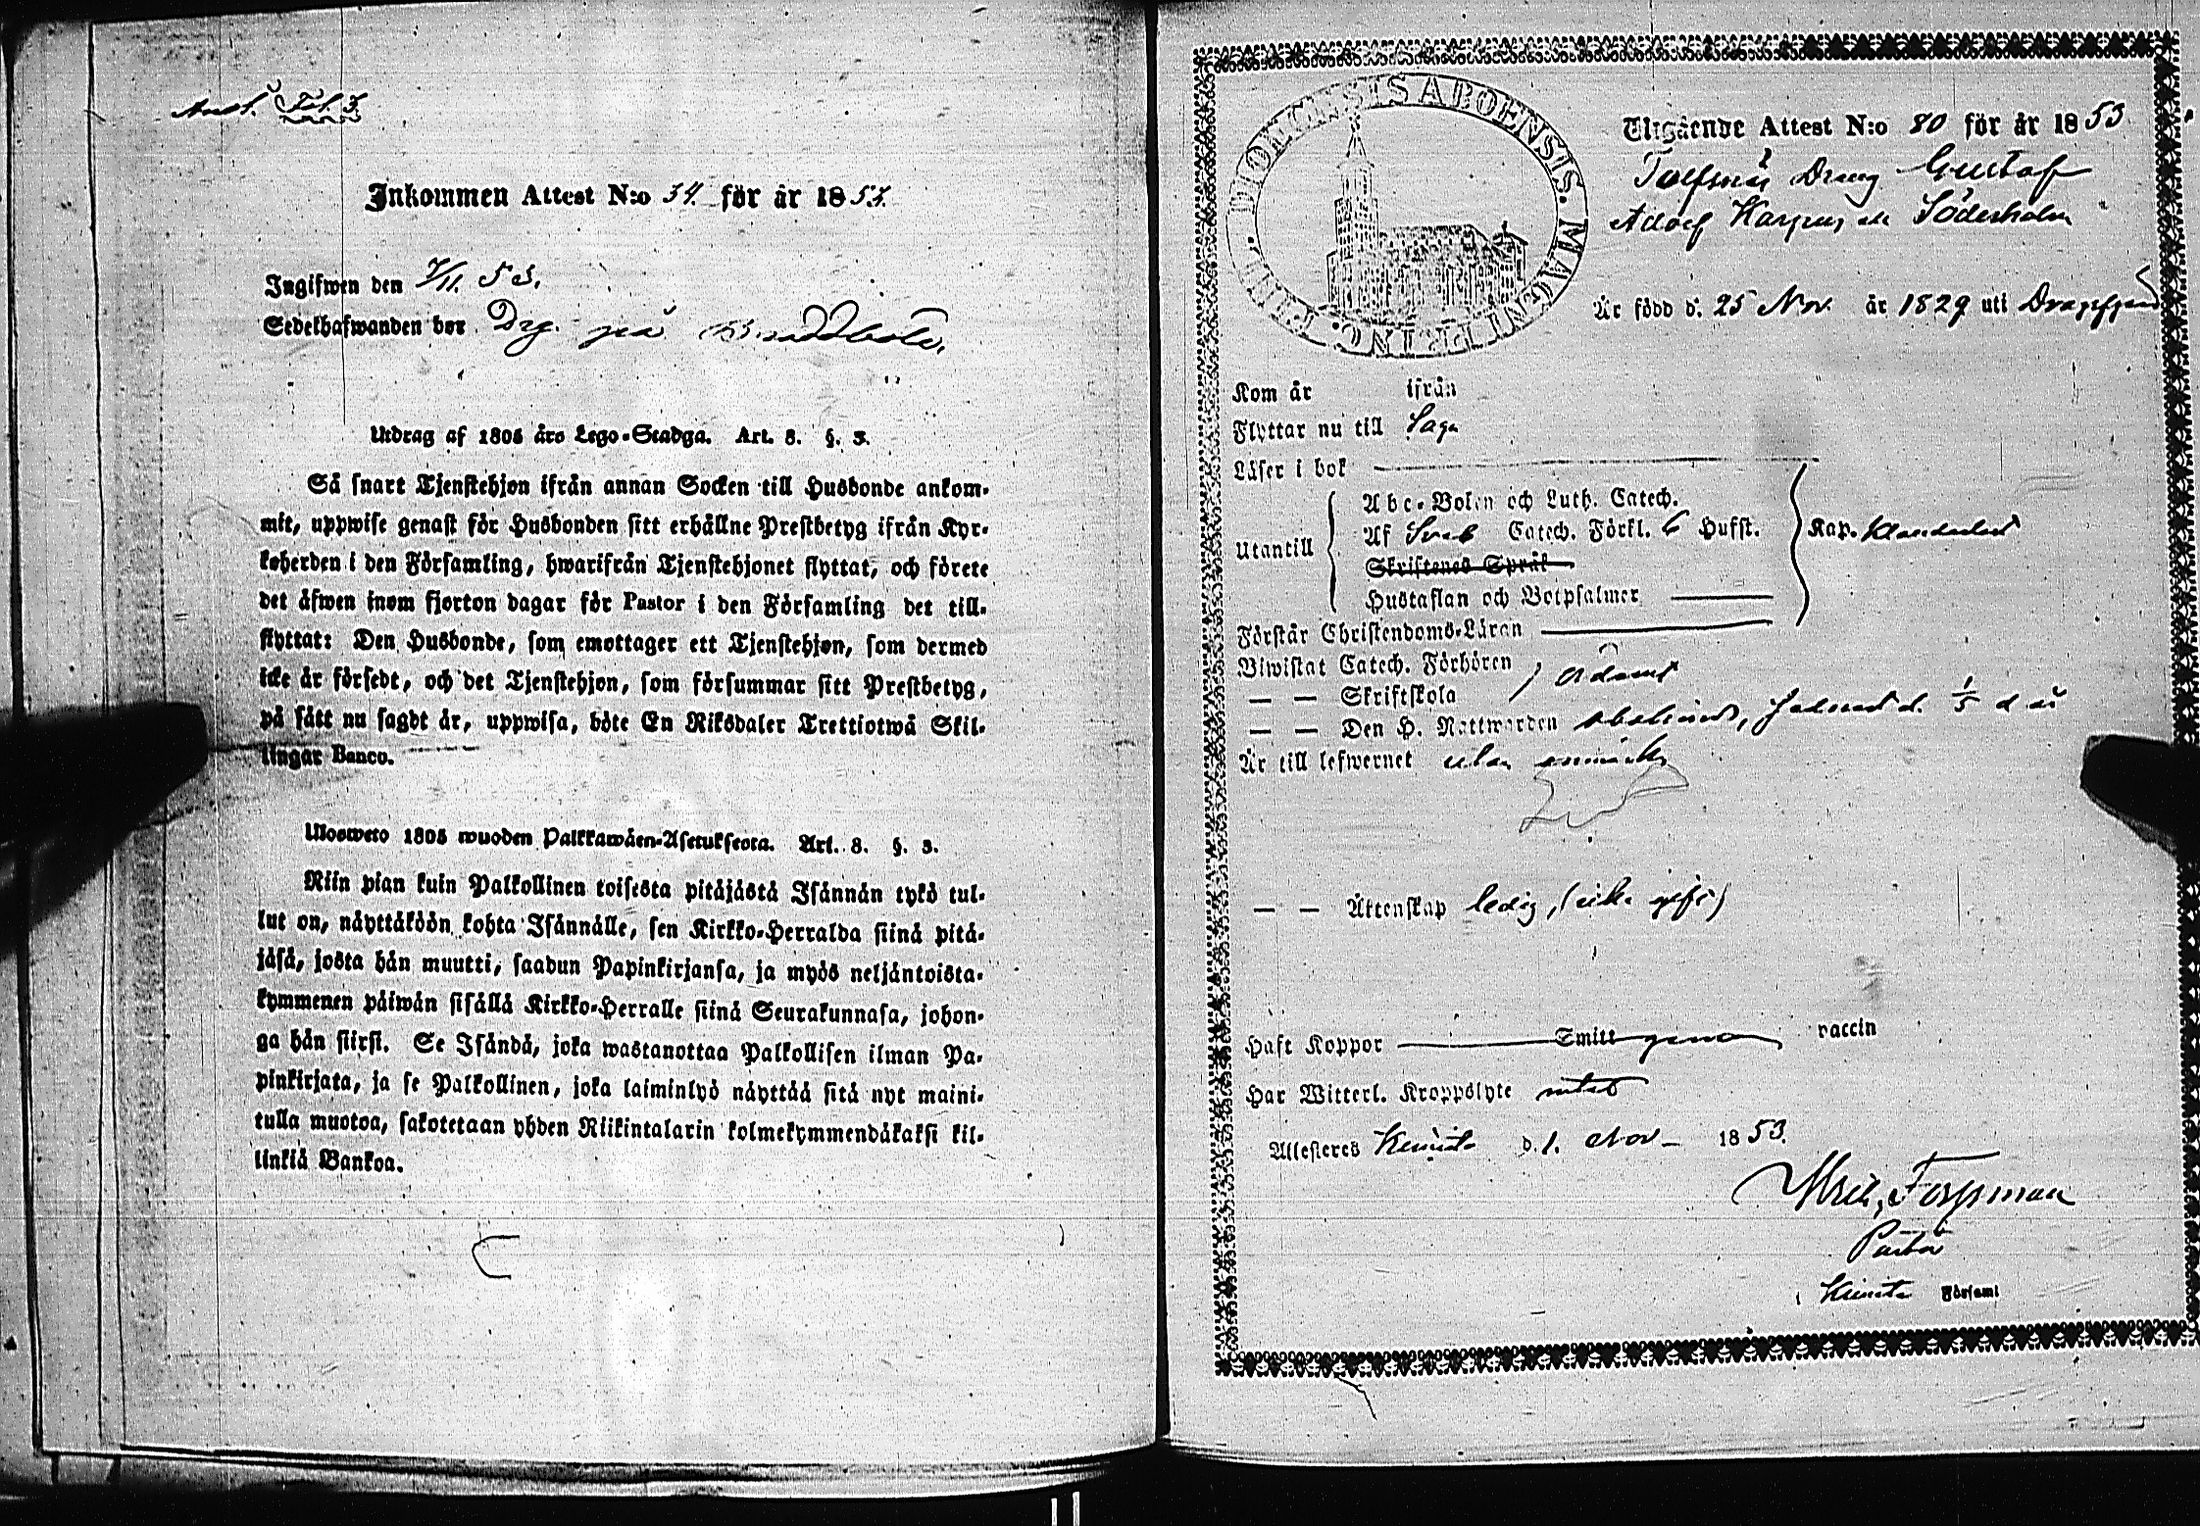 Anst. Fol. 3.
Inkommen Attest N:o 34. för år 1853.
Ingifwen den 7/11. 53.
Sedelhafwanden bor Drg. på
Utdrag af 1805 års Lego-Stadga. Art. 8. §. 3.
Så snart Tjenstehjon ifrån annan Socken till Husbonde ankom-
mit, uppwise genast för Husbonden sitt erhållne Prestbetyg ifrån Kyr-
koherden i den Församling, hwarifrån Tjenstehjonet flyttat, och förete
det äfwen inom fjorton dagar för Pastor i den Församling det till-
flyttat: Den Husbonde, som emottager ett Tjenstehjon, som dermed
icke är försedt, och det Tjenstehjon, som försummar sitt Prestbetyg,
på sätt nu sagdt är, uppwisa, böte En Riksdaler Trettiotwå Skil-
lingar Banco.
Ulosweto 1805 wuoden Palkkawäen-Asetuksesta. Art. 8. §. 3.
Niin pian kuin Palkollinen toisesta pitäjästä Isännän tykö tul-
lut on, näyttäköön kohta Isännälle, sen Kirkko-Herralda siinä pitä-
jäsä, josta hän muutti, saadun Papinkirjansa, ja myös neljäntoista-
kymmenen päiwän sisällä Kirkko-Herralle siinä Seurakunnasa, johon-
ga hän siirsi. Se Isändä, joka wastanottaa Palkollisen ilman Pa-
pinkirjata, ja se Palkollinen, joka laiminlyö näyttää sitä nyt maini-
tulla muotoa, sakotetaan yhden Riikintalarin kolmekymmendäkaksi kil-
linkiä Bankoa.
DIOECESIS ABOENSIS. MAGNI PRINC. FINL.
Utgående Attest N:o 80 för år 1853
Tolfsnäs Dreng Gustaf
Adolf Söderholm
Är född d. 25 Nov. år 1829 uti Dragsfjerd
Kom år ifrån
Flyttar nu till Sagu
Läser i bok
Utantill
Abc-Boken och Luth. Catech.
Af Sveb Catech. Förkl. 6 Hufst.
Skriftenes Språk
Hustaflan och Botpsalmer
Kap.
Förstår Christendoms-Läran
Biwistat Catech. Förhören
— — Skriftskola
— — Den H. Nattwarden d. 1/5 d år
Är till lefwernet utan anmärkn
— — Ättenskap ledig, (icke gift)
Haft Koppor Smitt genom vaccin
Har Witterl. Kroppslyte intet
Attesteras Kimito d. 1. Nov 1853.
Forssman
Pastor
i Kimito Församl